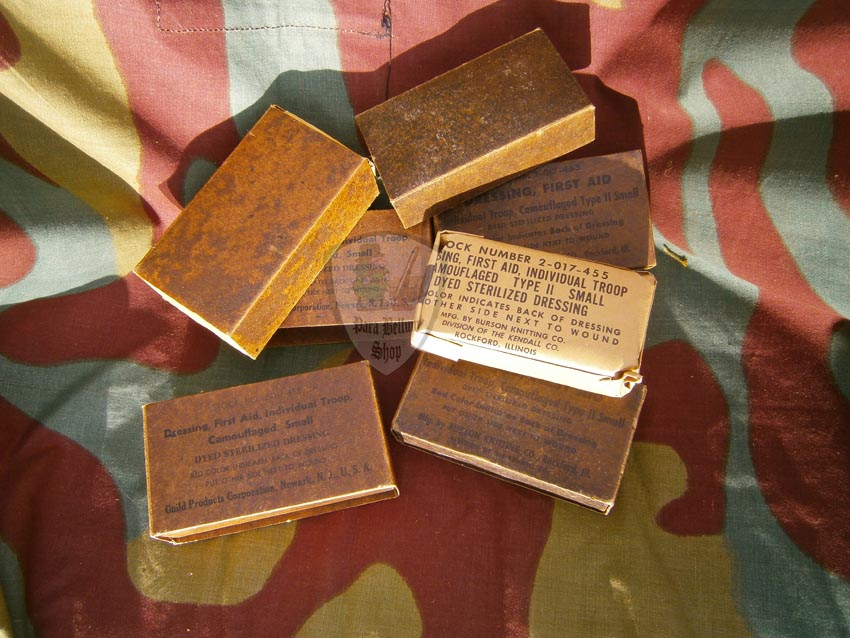 -017-455
DRESSING, FIRST AID
Individual Troop, Camouflaged Type II Small
DYED STERILIZED DRESSING
Indicates Back of Dressing
SIDE NEXT TO WOUND
Rockford, Ill.
Individual Troop,
Small
DRESSING
Corporation, Newark, N.J.
OCK NUMBER 2-017-455
SING, FIRST AID, INDIVIDUAL TROOP
MOUFLAGED TYPE II SMALL
DYED STERILIZED DRESSING
OLOR INDICATES BACK OF DRESSING
OTHER SIDE NEXT TO WOUND
MFG. BY BURSON KNITTING CO.
DIVISION OF THE KENDALL CO.
ROCKFORD, ILLINOIS
Para Bellum
Shop
Individual Troop, Camouflaged Type II Small
DYED STERILIZED DRESSING
Red Color Indicates Back of Dressing
PUT OTHER SIDE NEXT TO WOUND
Mfg. by BURSON KNITTING CO., Rockford, Ill.
STOCK NO.
Dressing, First Aid, Individual Troop,
Camouflaged, Small
DYED STERILIZED DRESSING
RED COLOR INDICATES BACK OF DRESSING
PUT OTHER SIDE NEXT TO WOUND
Guild Products Corporation, Newark, N. J., U. S. A.